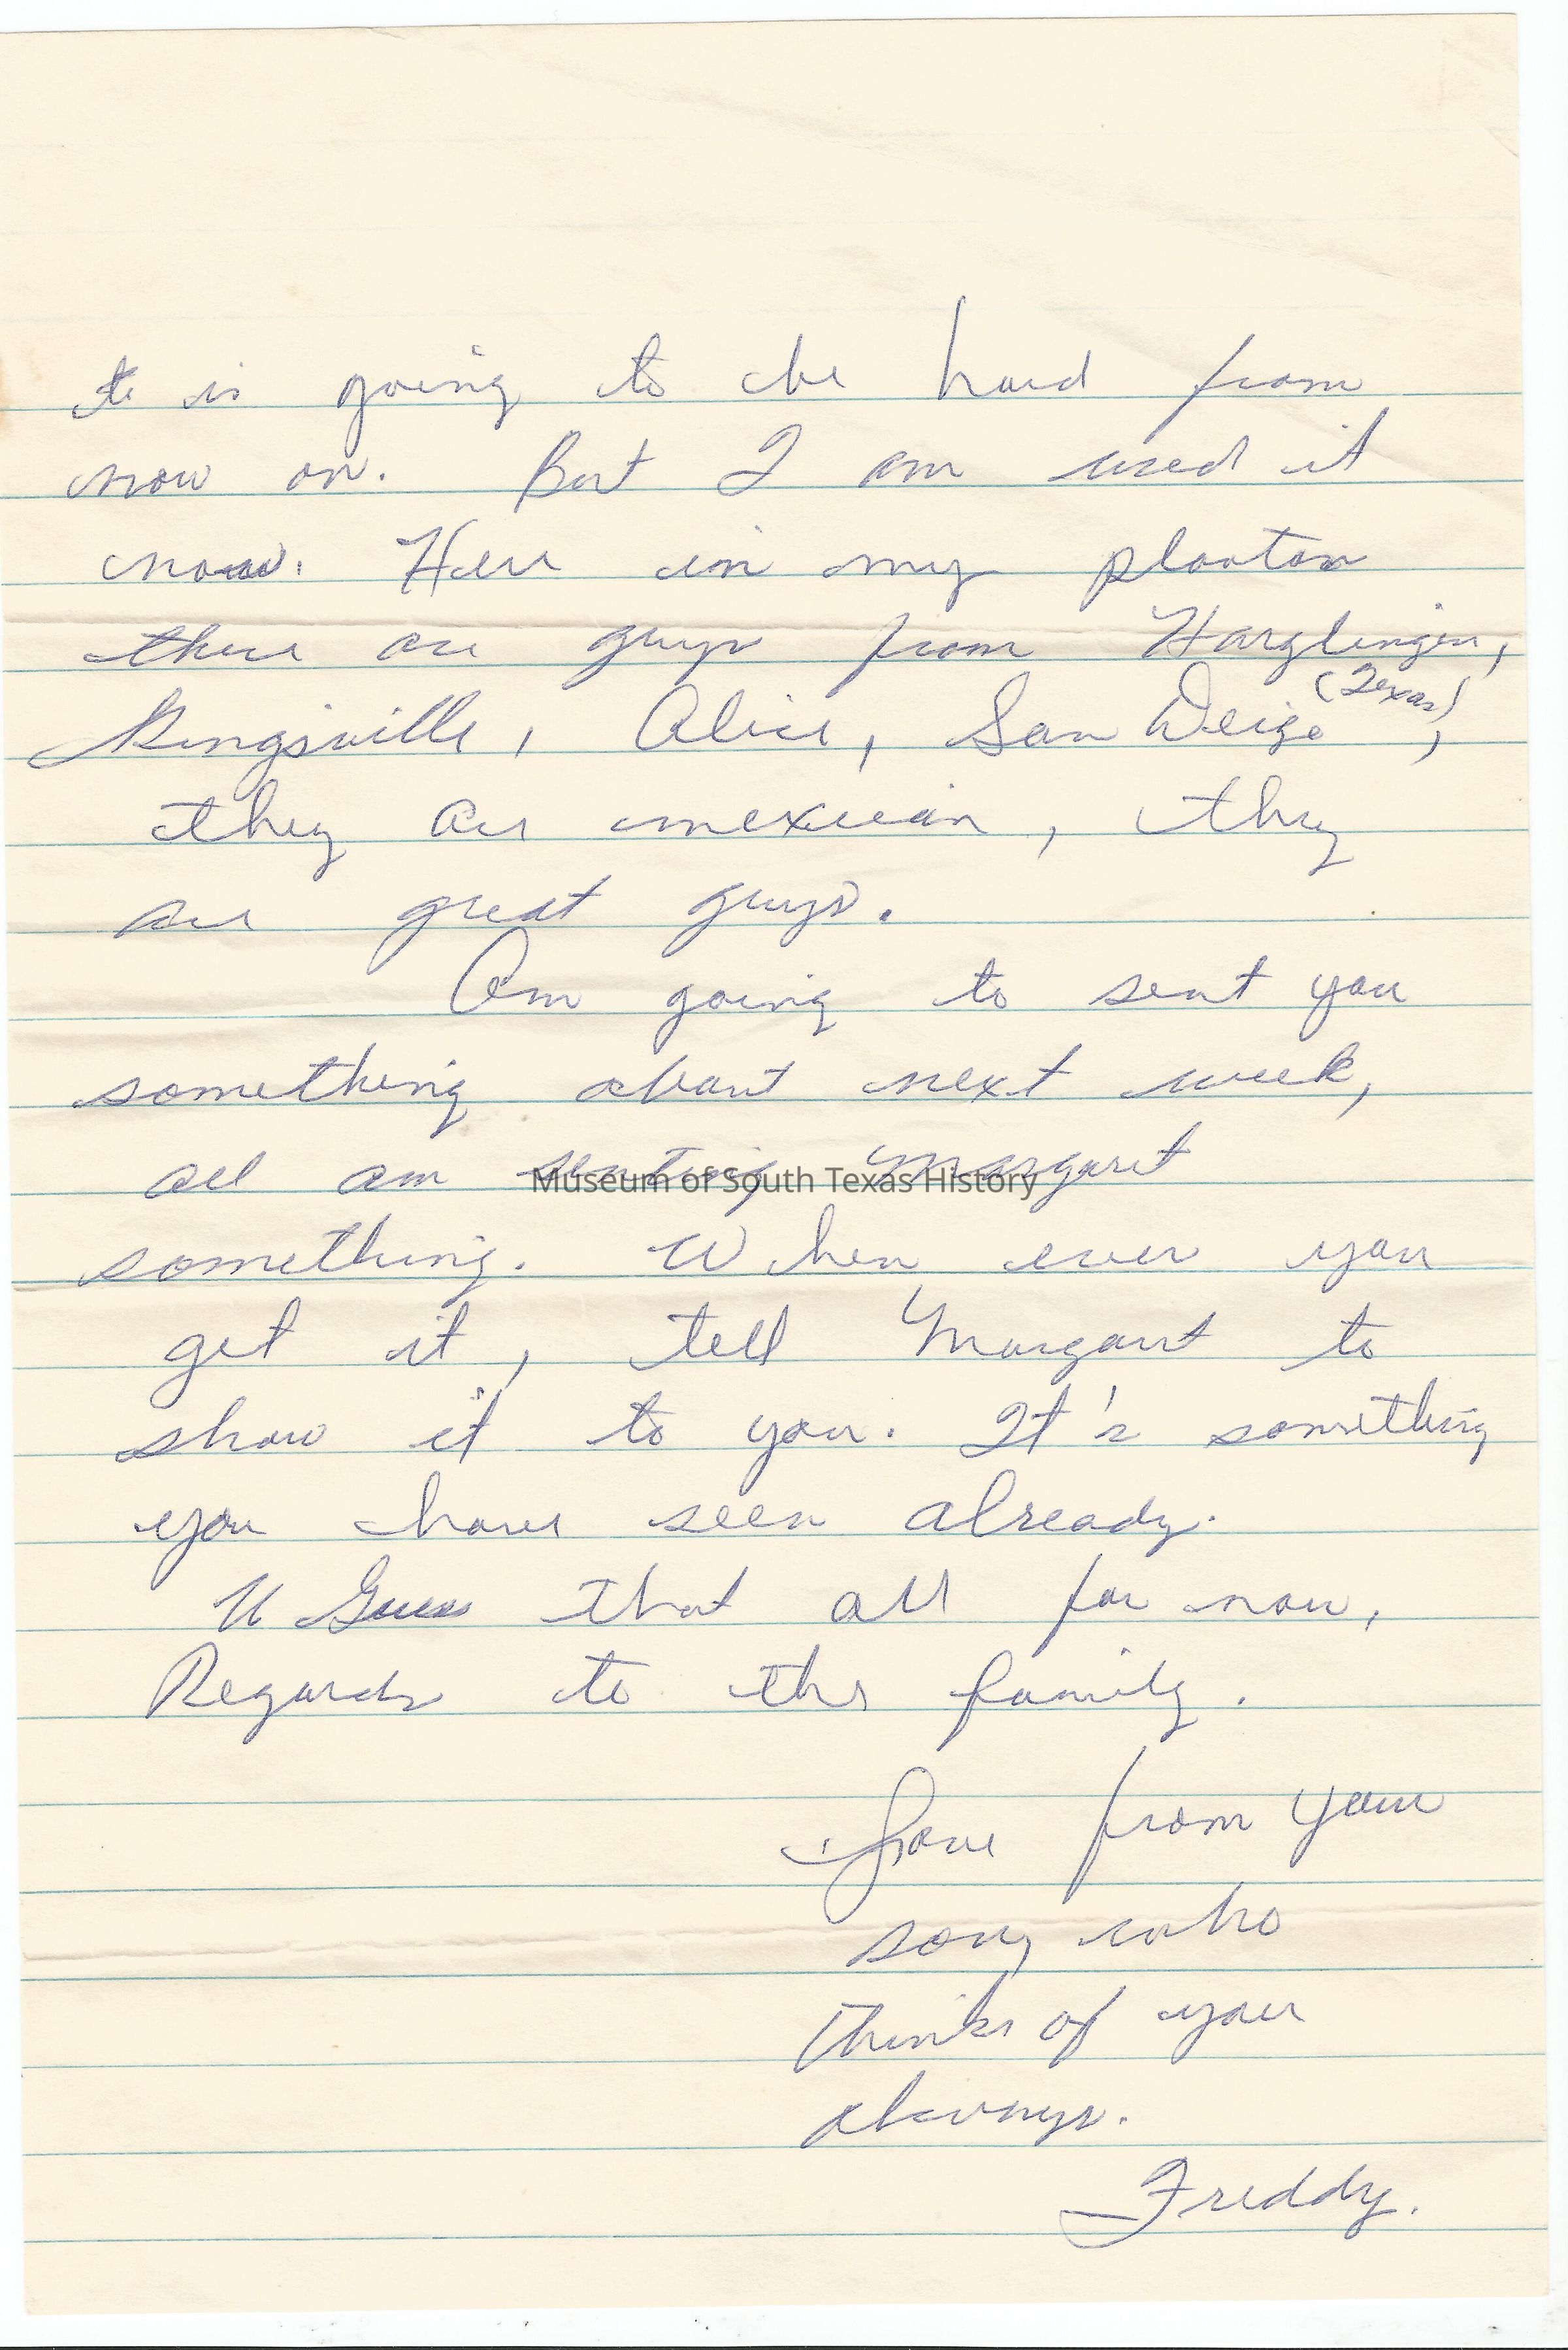 it is going to be hard from
now on. But I am used it
now. Here in my plooton
there are guys from Harglingin,
Kingsville, Alice, San Deigo (Texas),
they are mexican, they
are great guys.
Am going to sent you
something about next week,
am senting Margaret
Museum of South Texas History
something. When ever you
get it, tell Margaret to
show it to you. It's something
you have seen already.
Guess that all for now,
Regards to the family.
Love from your
son, who
thinks of you
always.
Freddy.